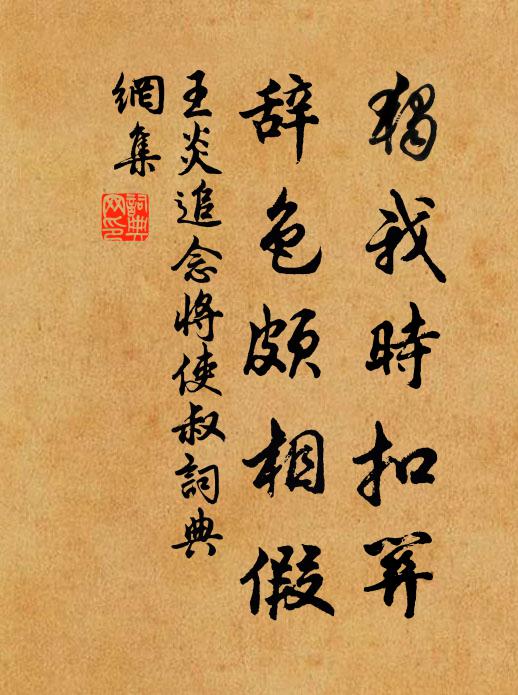 獨我時扣
辞色頗相假
王炎追念將使叔詞典
網集
詞典
网印